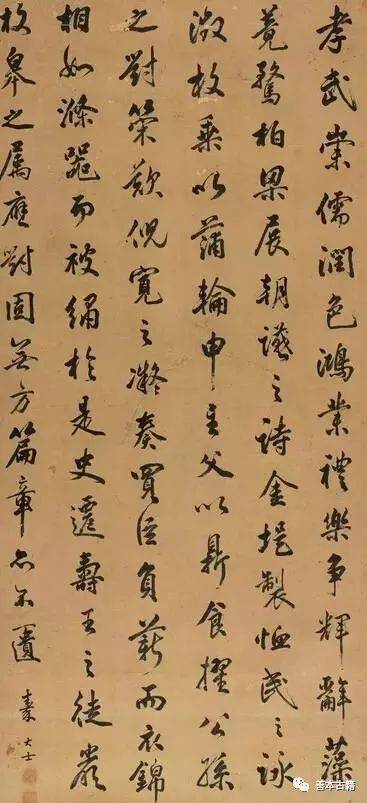 孝武崇儒潤色鴻業禮樂爭輝辭藻
竟騖柏梁展朝讌之詩金堤製恤民之詠
徵枚乘以蒲輪申主父以鼎食擢公孫
之對策歎倪寬之凝奏買臣負薪而衣錦
相如滌器而被繡於是史遷壽王之徒嚴
枚皋之屬應對固無方篇章亦不匱
秦大士
善本古籍